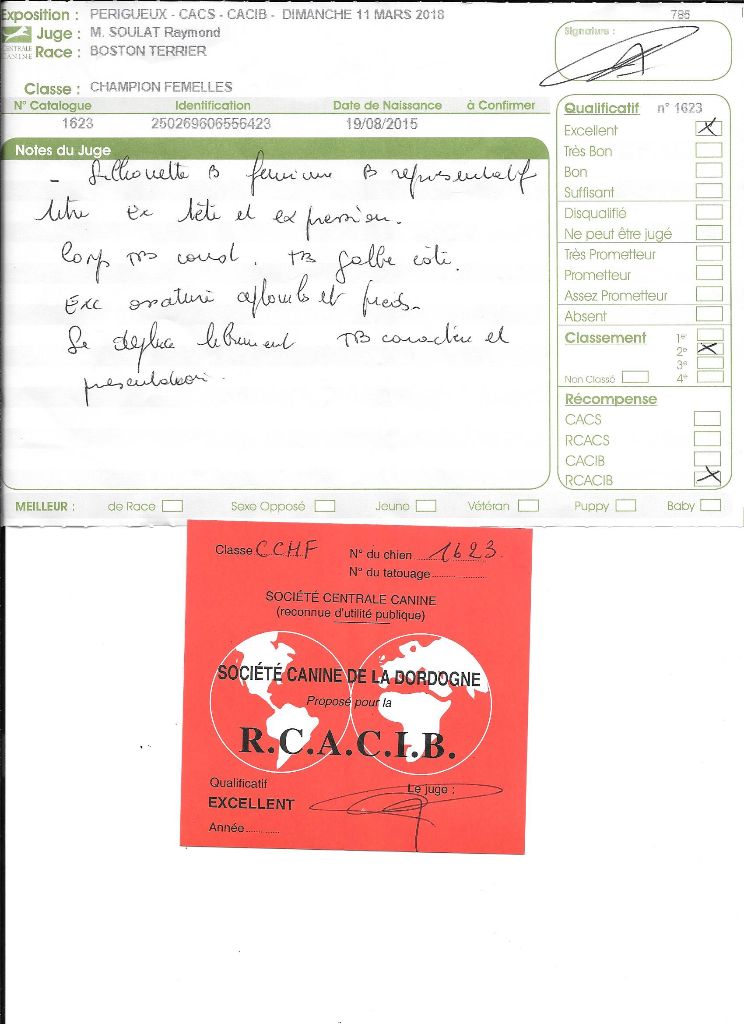 Exposition : PERIGUEUX - CACS - CACIB - DIMANCHE 11 MARS 2018
785
Juge : M. SOULAT Raymond
Race : BOSTON TERRIER
CENTRALE CANINE
Signature :
Classe : CHAMPION FEMELLES
N° Catalogue Identification Date de Naissance à Confirmer
1623 250269606556423 19/08/2015
Notes du Juge
- Silhouette B feminine B representatif
tete et expression.
Corps TB court. TB galbe cote.
Exc ossature aplombs et pieds.
Se deplace librement TB caractère et
presentation.
Qualificatif n° 1623
Excellent X
Très Bon
Bon
Suffisant
Disqualifié
Ne peut être jugé
Très Prometteur
Prometteur
Assez Prometteur
Absent
Classement 1e
2e X
3e
Non Classé 4e
Récompense
CACS
RCACS
CACIB
RCACIB X
MEILLEUR : de Race Sexe Opposé Jeune Vétéran Puppy Baby
Classe CCHF N° du chien 1623
N° du tatouage
SOCIÉTÉ CENTRALE CANINE
(reconnue d'utilité publique)
SOCIÉTÉ CANINE DE LA DORDOGNE
Proposé pour la
R.C.A.C.I.B.
Qualificatif Le juge :
EXCELLENT
Année